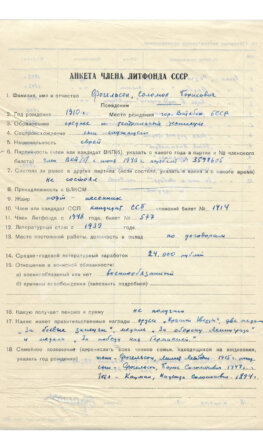 АНКЕТА ЧЛЕНА ЛИТФОНДА СССР
1. Фамилия, имя и отчество Фогельсон, Соломон Борисович
Псевдоним
2. Год рождения 1910 г. Место рождения гор. Витебск, БССР
3. Образование среднее и
4. Соцпроисхождение сын служащего
5. Национальность еврей
6. Партийность член или кандидат ВКП(б), указать с какого года и партия — № членского
билета) член ВКП(б) с
7. Состоял ли ранее в других партиях (если состоял, указать в каких и с какого времени)
не состоял
8. Принадлежность к ВЛКСМ
9. Жанр поэт - песенник
10. Член или кандидат ССП кандидат ССП членский билет № 1914
11. Член Литфонда с 1948 года, билет № 577
12. Литературный стаж с 1932 года
13. Место постоянной работы, должность и оклад по договорам
14. Средне-годовой литературный заработок 24,000 рублей
15. Отношение к воинской обязанности:
а) военнообязанный или нет военнообязанный
б) причины освобождения (заполнять подробно)
16. Какую получает пенсию и сумму не получаю
17. Какие имеет правительственные награды орден „Красной Звезды", две медали
„За боевые заслуги", медаль „За оборону Ленинграда"
и медаль „За победу над Германией"
18. Семейное положение (перечислить всех членов семьи, находящихся на иждивении,
указать год рождения)